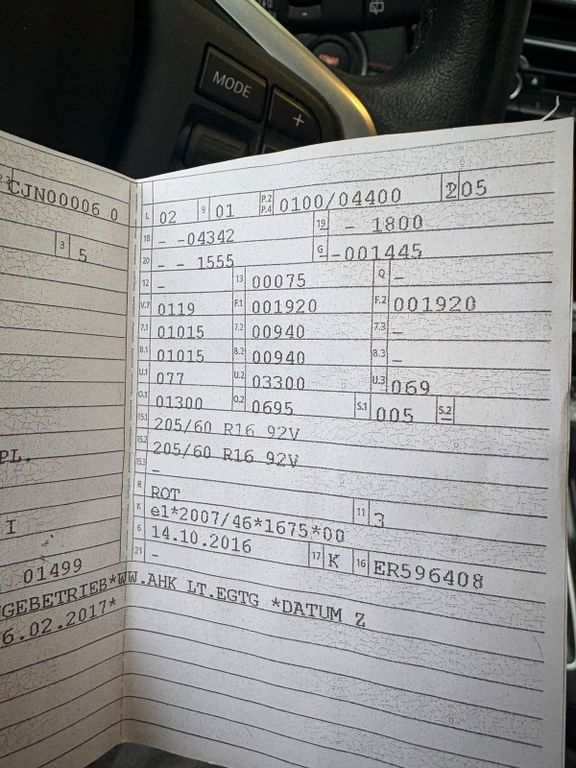 MODE
+
CJN00006 0
3 5
PL.
I
01499
L 02 9 01 P.2 P.4 0100/04400 205
18 - -04342 19 - 1800
20 - - 1555 G -001445
12 - 13 00075 Q -
V.7 0119 F.1 001920 F.2 001920
7.1 01015 7.2 00940 7.3 -
8.1 01015 8.2 00940 8.3 -
U.1 077 U.2 03300 U.3 069
O.1 01300 O.2 0695 S.1 005 S.2 -
15.1 205/60 R16 92V
15.2 205/60 R16 92V
15.3 -
R ROT 11 3
K e1*2007/46*1675*00
6 14.10.2016 17 K 16 ER596408
21 -
NGEBETRIEB*WW.AHK LT.EGTG *DATUM Z
6.02.2017*